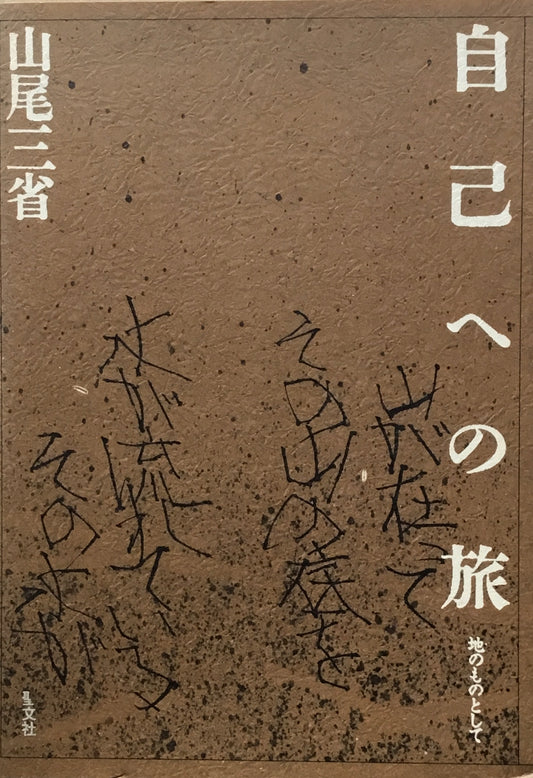 自己への旅
地のものとして
山が在って
その山の奥を
水が流れている
その水が
山尾三省
聖文社